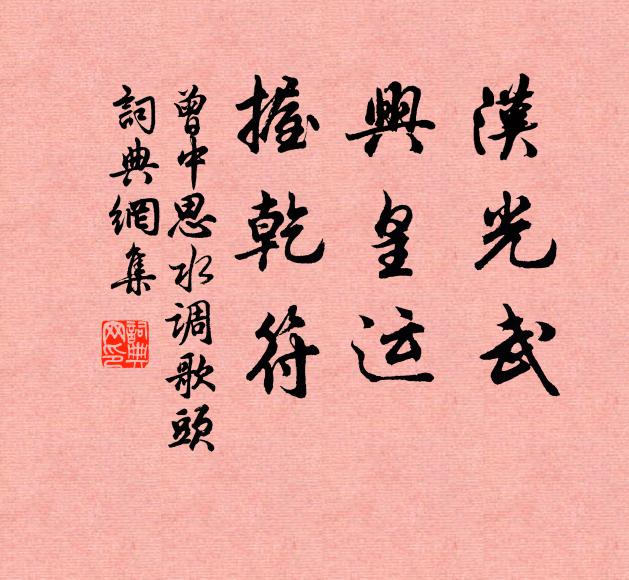 漢光武
興皇运
握乾符
曾中思水调歌頭
詞典網集
詞典网印